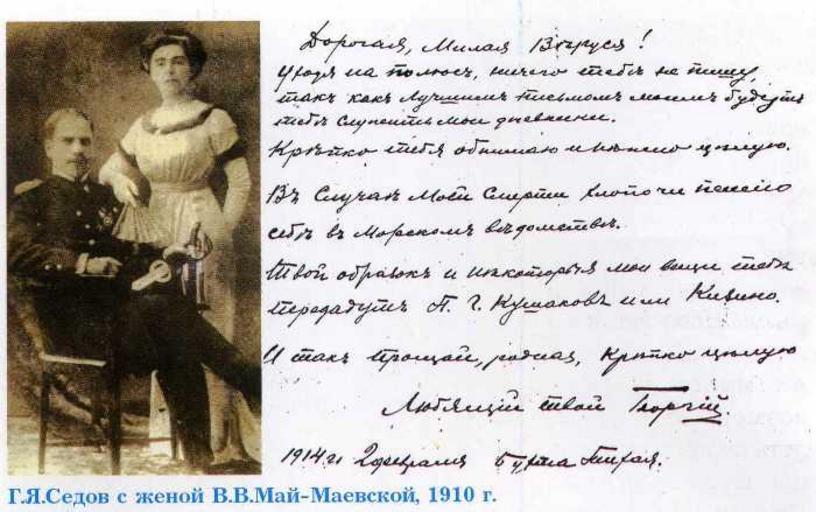 Дорогая, Милая Вѣруся!
Уходя на полюсъ, ничего тебѣ не пишу,
такъ какъ лучшимъ письмомъ моимъ будутъ
тебѣ служить мои дневники.
Крѣпко тебя обнимаю и нѣжно цѣлую.
Въ случаѣ моей смерти хлопочи пенсію
себѣ въ Морскомъ вѣдомствѣ.
Твой образокъ и нѣкоторыя мои вещи тебѣ
передадутъ П. Г. Кушаковъ или Кизино.
И такъ прощай, родная, крѣпко цѣлую
Любящій твой Георгій
1914 г. 2 февраля бухта Тихая.
Г.Я.Седов с женой В.В.Май-Маевской, 1910 г.